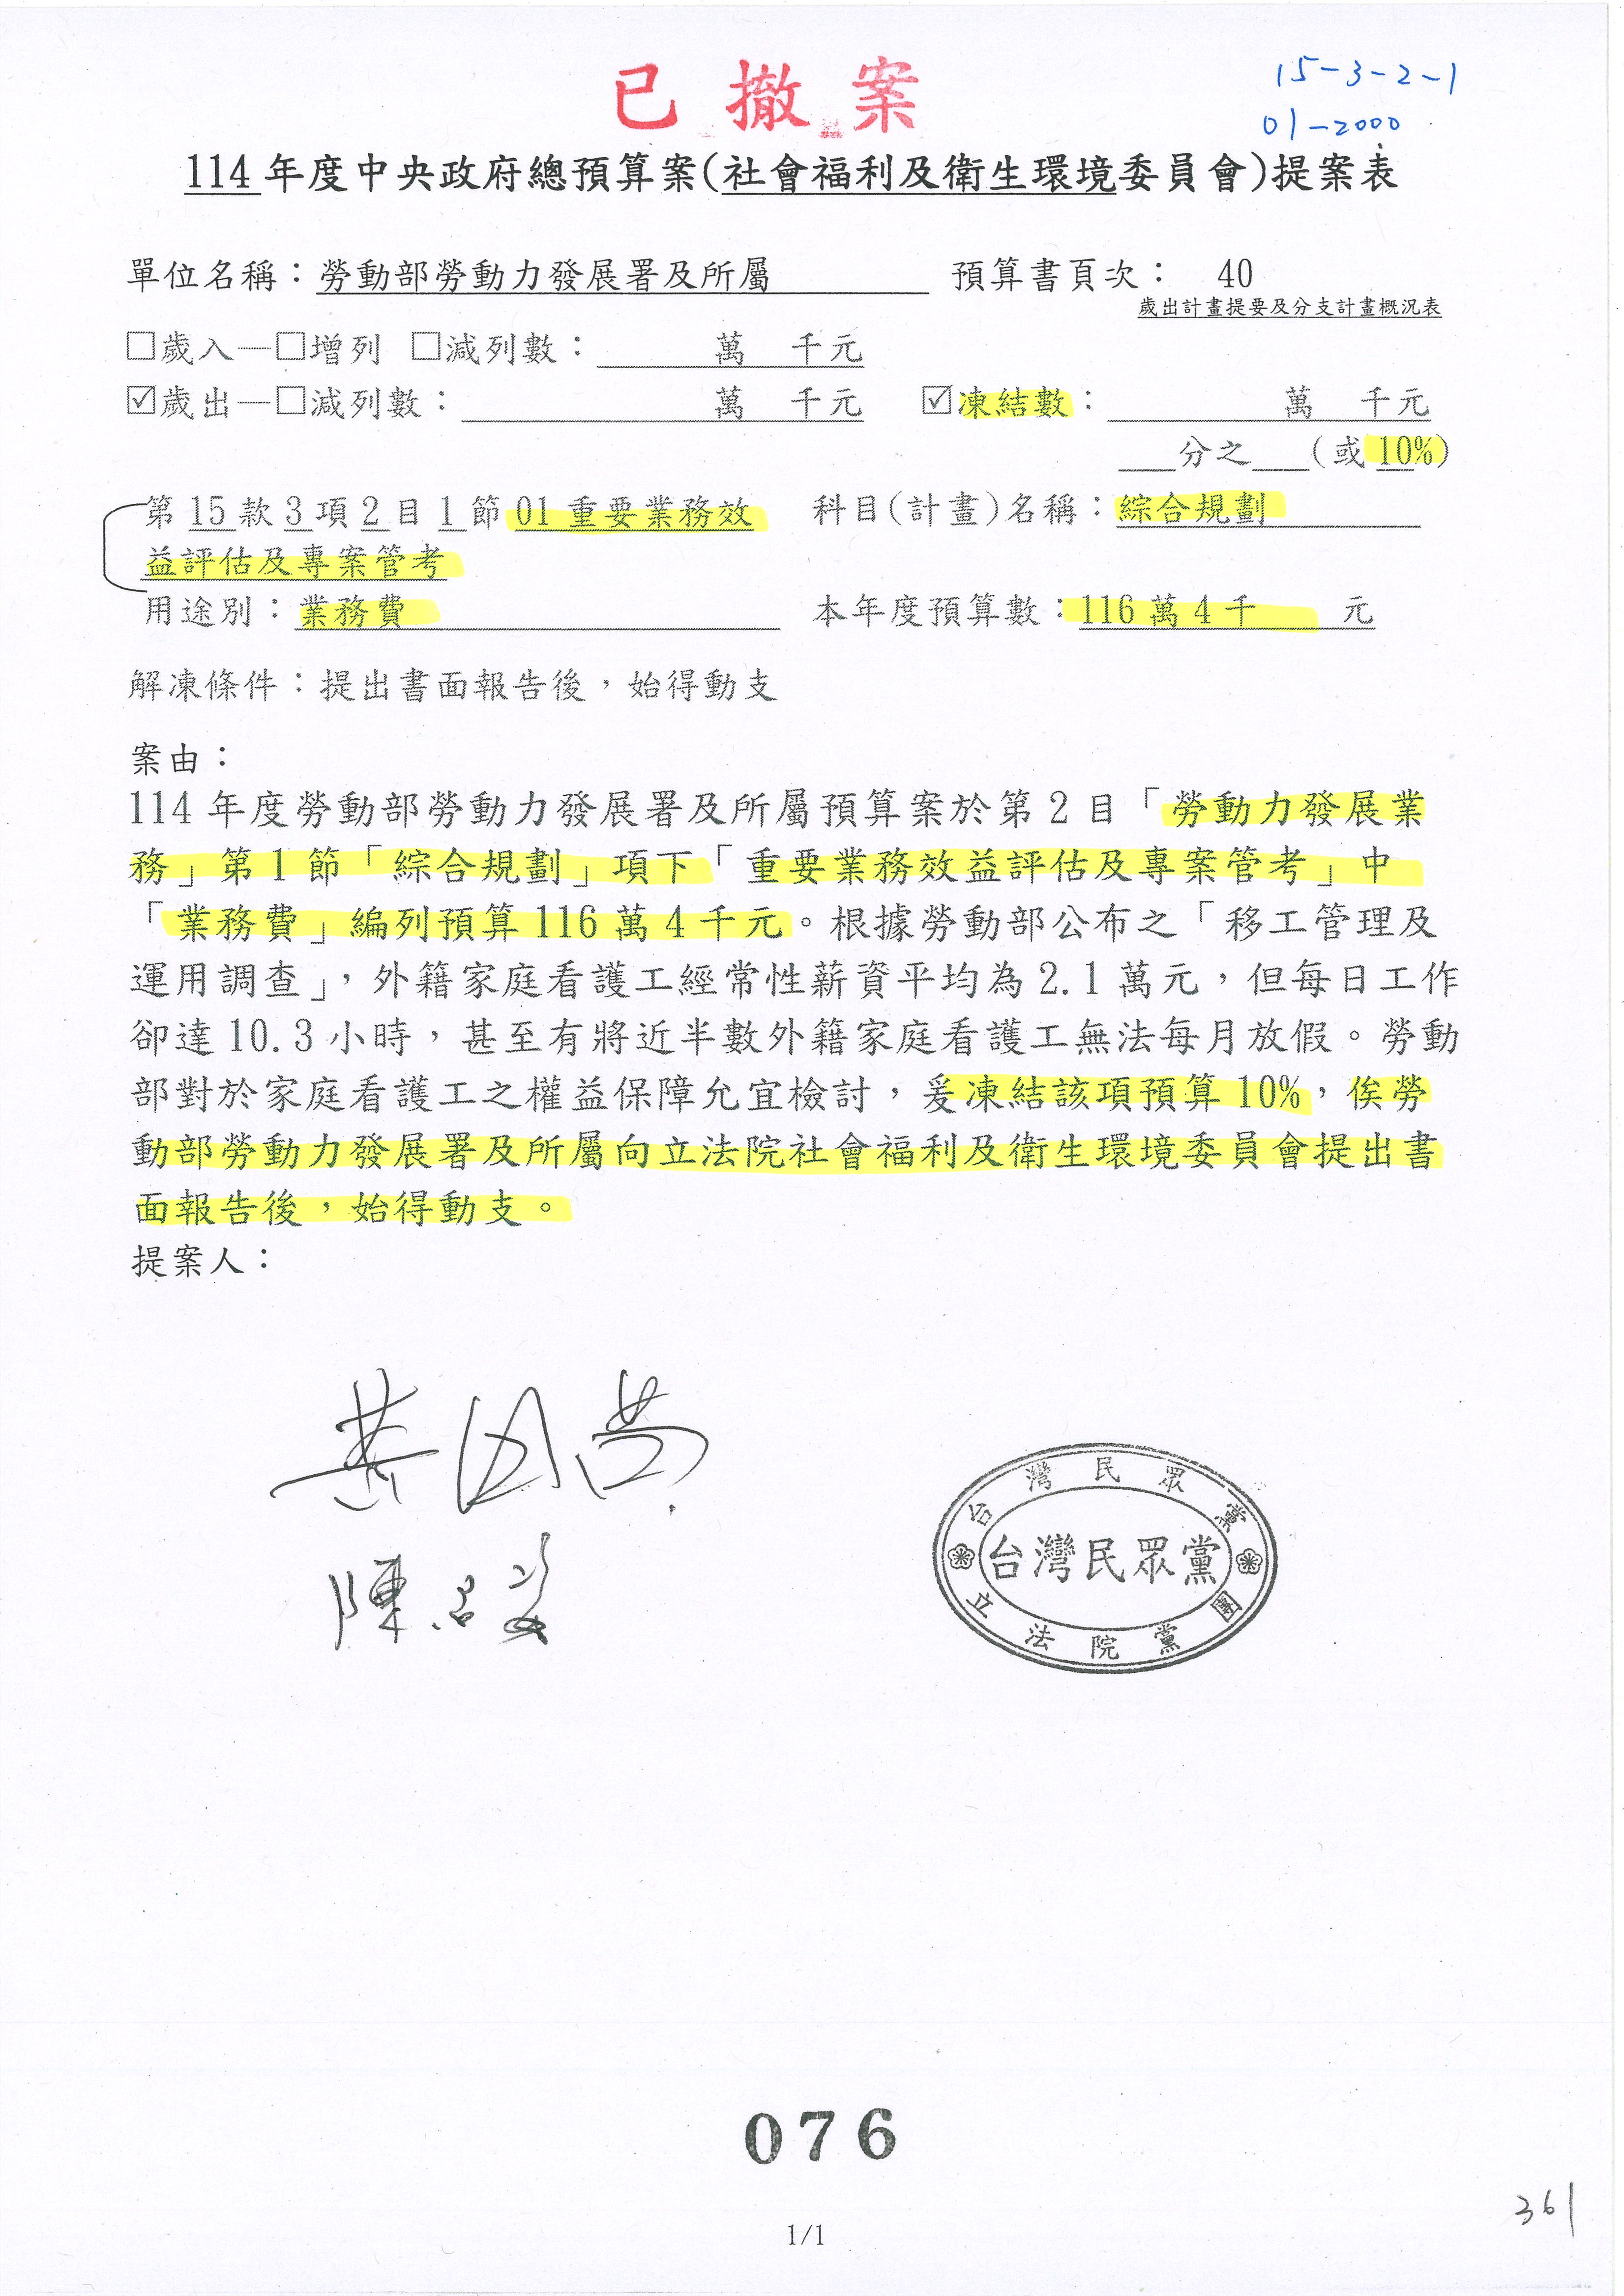 已撤案
15-3-2-1
01-2000
114年度中央政府總預算案(社會福利及衛生環境委員會)提案表
單位名稱：勞動部勞動力發展署及所屬 預算書頁次： 40
歲出計畫提要及分支計畫概況表
□歲入—□增列 □減列數： 萬 千元
☑歲出—□減列數： 萬 千元 ☑凍結數： 萬 千元
___分之___(或10%)
第15款3項2目1節01重要業務效 科目(計畫)名稱：綜合規劃
益評估及專案管考
用途別：業務費 本年度預算數：116萬4千 元
解凍條件：提出書面報告後，始得動支
案由：
114年度勞動部勞動力發展署及所屬預算案於第2目「勞動力發展業
務」第1節「綜合規劃」項下「重要業務效益評估及專案管考」中
「業務費」編列預算116萬4千元。根據勞動部公布之「移工管理及
運用調查」，外籍家庭看護工經常性薪資平均為2.1萬元，但每日工作
卻達10.3小時，甚至有將近半數外籍家庭看護工無法每月放假。勞動
部對於家庭看護工之權益保障允宜檢討，爰凍結該項預算10%，俟勞
動部勞動力發展署及所屬向立法院社會福利及衛生環境委員會提出書
面報告後，始得動支。
提案人：
黃國昌
台灣民眾黨
台灣民眾黨
立法院黨團
076
361
1/1